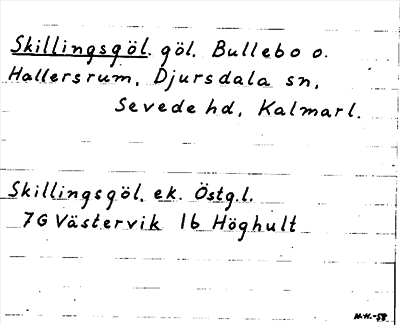 Skillingsgöl. göl. Bullebo o.
Hallersrum, Djursdala sn,
Sevede hd, Kalmarl.
Skillingsgöl, ek. Östg.l.
7G Västervik 1b Höghult
N.H.-58